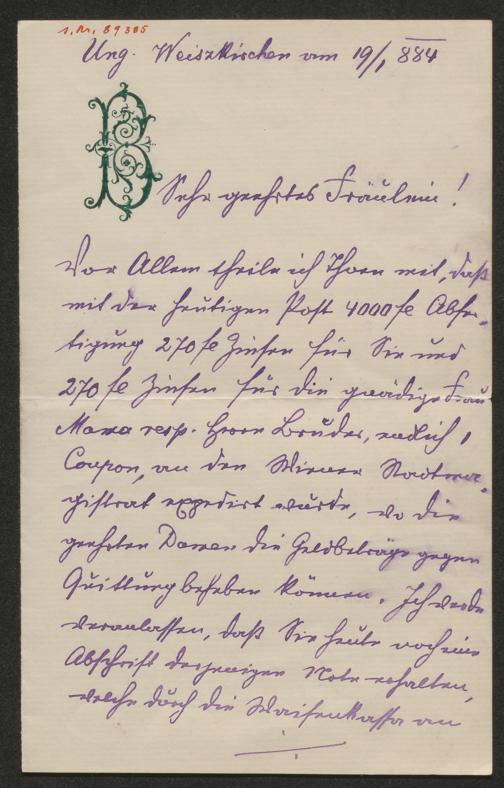 I.N. 89385
Ung. Weiszkirchen am 19/1 884
B
Sehr geehrtes Fräulein!
Vor Allem theile ich Ihnen mit, daß
mit der heutigen Post 4000 fl Abfer-
tigung 270 fl Zinsen für Sie und
270 fl Zinsen für die gnädige Frau
Mama resp. Herrn Bruder, endlich 1
Coupon, an den Wiener Stadtma-
gistrat expedirt wurde, wo die
geehrten Damen die Geldbeträge gegen
Quittung beheben können. Ich werde
veranlassen, daß Sie heute noch eine
Abschrift derjenigen Note erhalten,
welche durch die Waisenkassa an